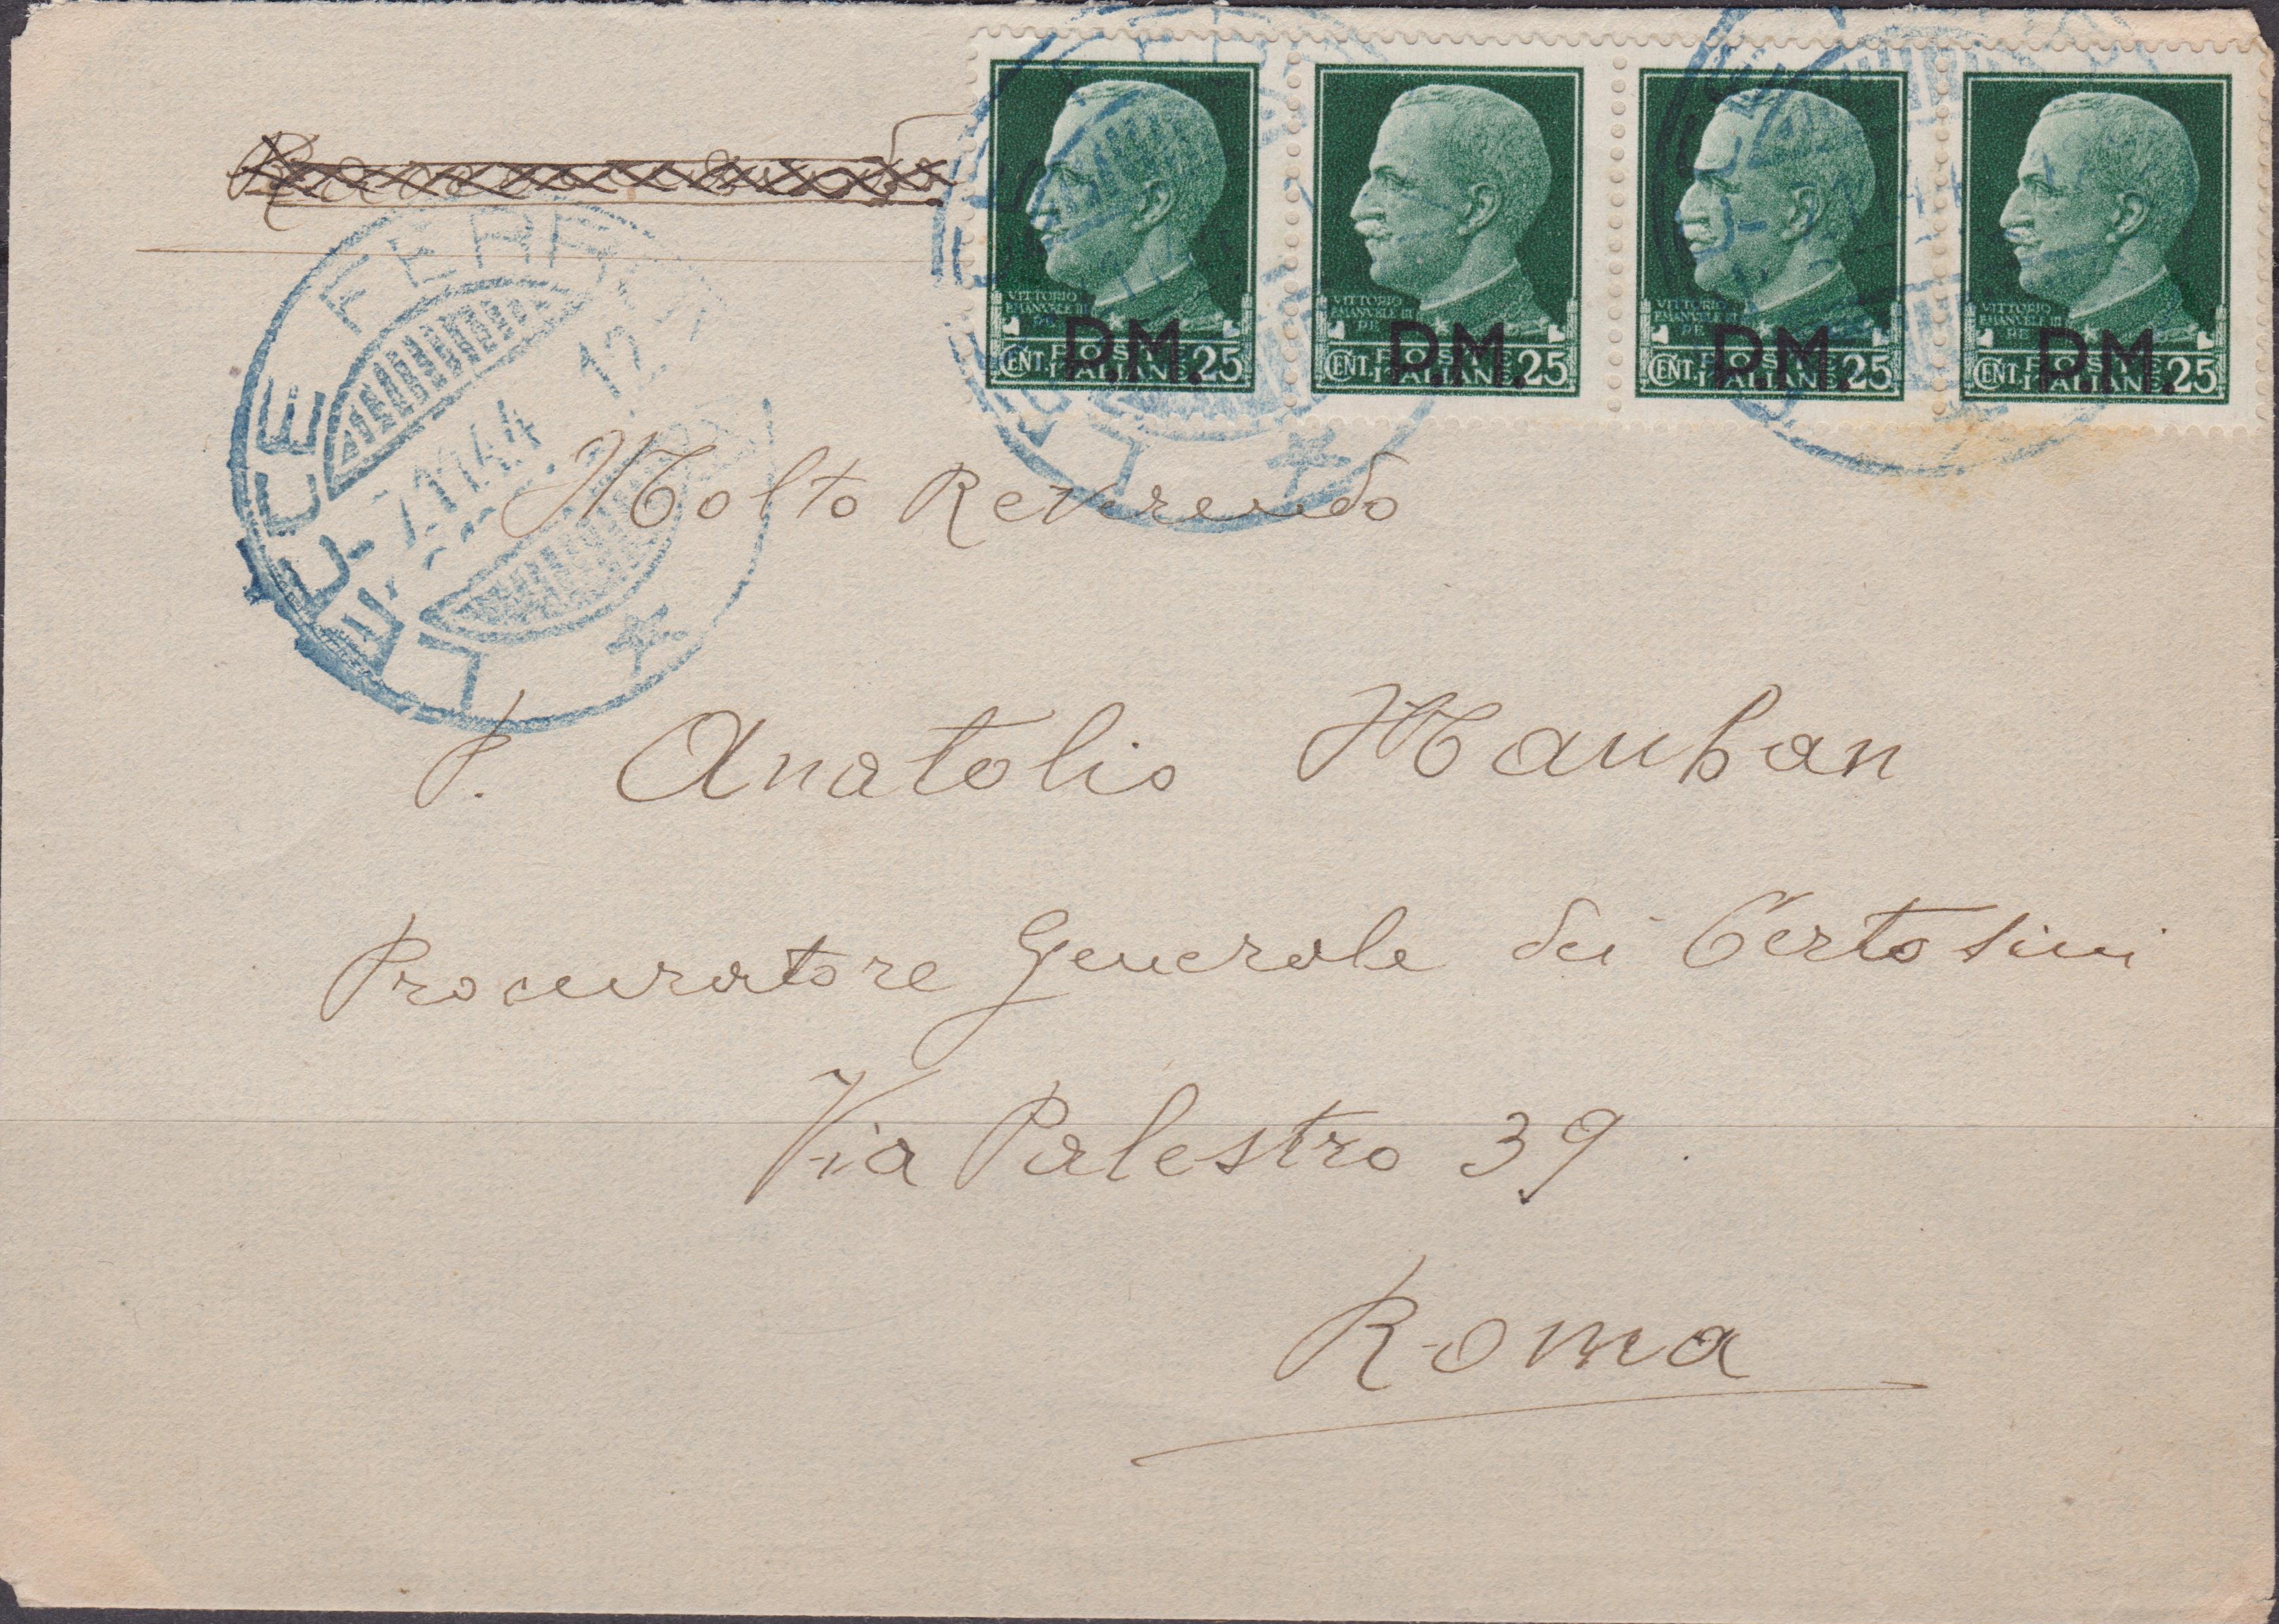 Raccomandata
VITTORIO
EMANVELE III
RE
P.M.
POSTE
CENT. ITALIANE 25
VITTORIO
EMANVELE III
RE
P.M.
POSTE
CENT. ITALIANE 25
VITTORIO
EMANVELE III
RE
P.M.
POSTE
CENT. ITALIANE 25
VITTORIO
EMANVELE III
RE
P.M.
POSTE
CENT. ITALIANE 25
LECCE FERROVIA
7.11.44 12
Molto Reverendo
P. Anatolio Mauban
Procuratore Generale dei Certosini
Via Palestro 39
Roma